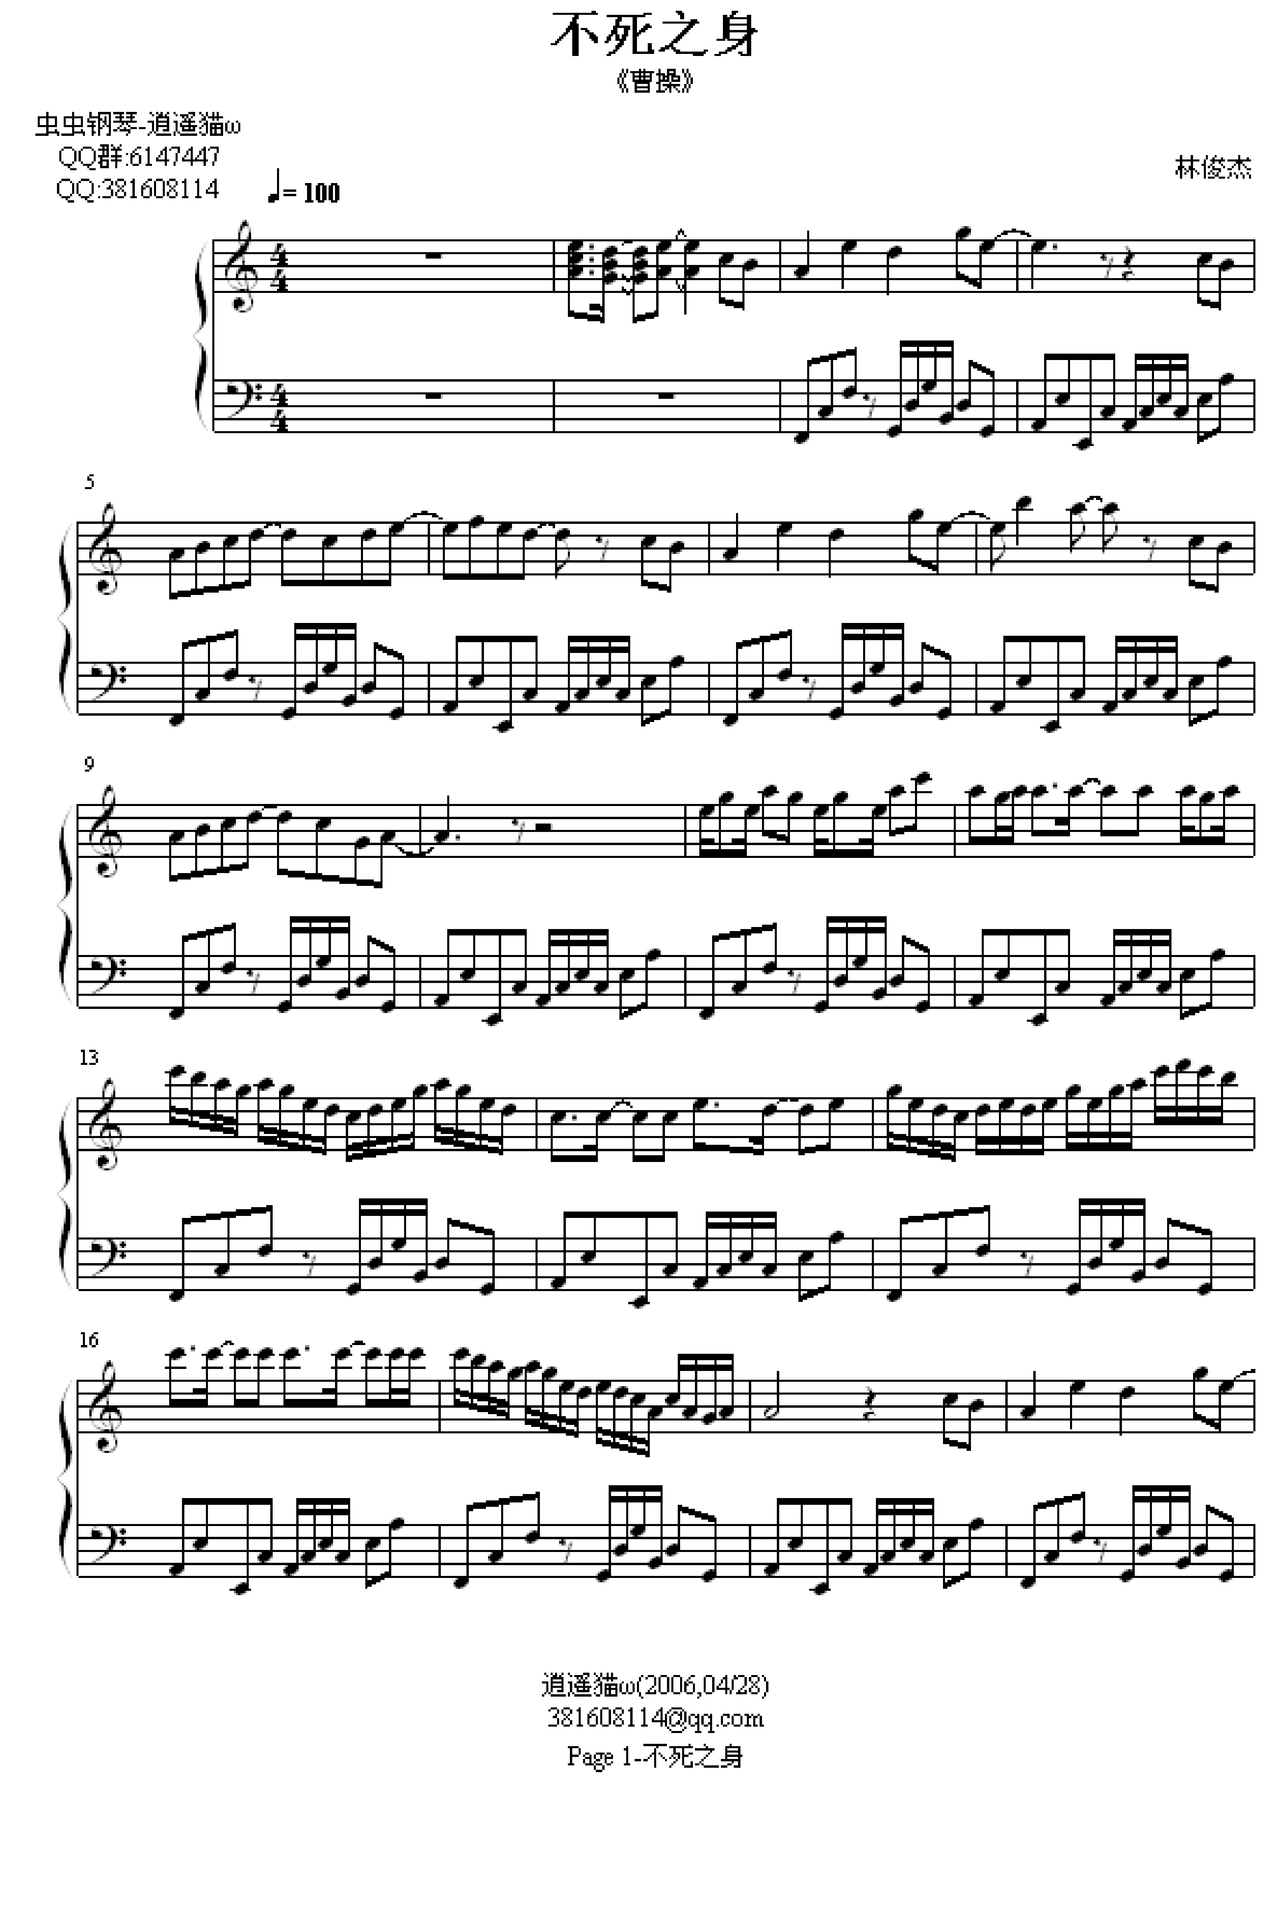 不死之身
《曹操》
虫虫钢琴-逍遥猫ω
QQ群:6147447
QQ:381608114
林俊杰
= 100
5
9
13
16
逍遥猫ω(2006,04/28)
381608114@qq.com
Page 1-不死之身